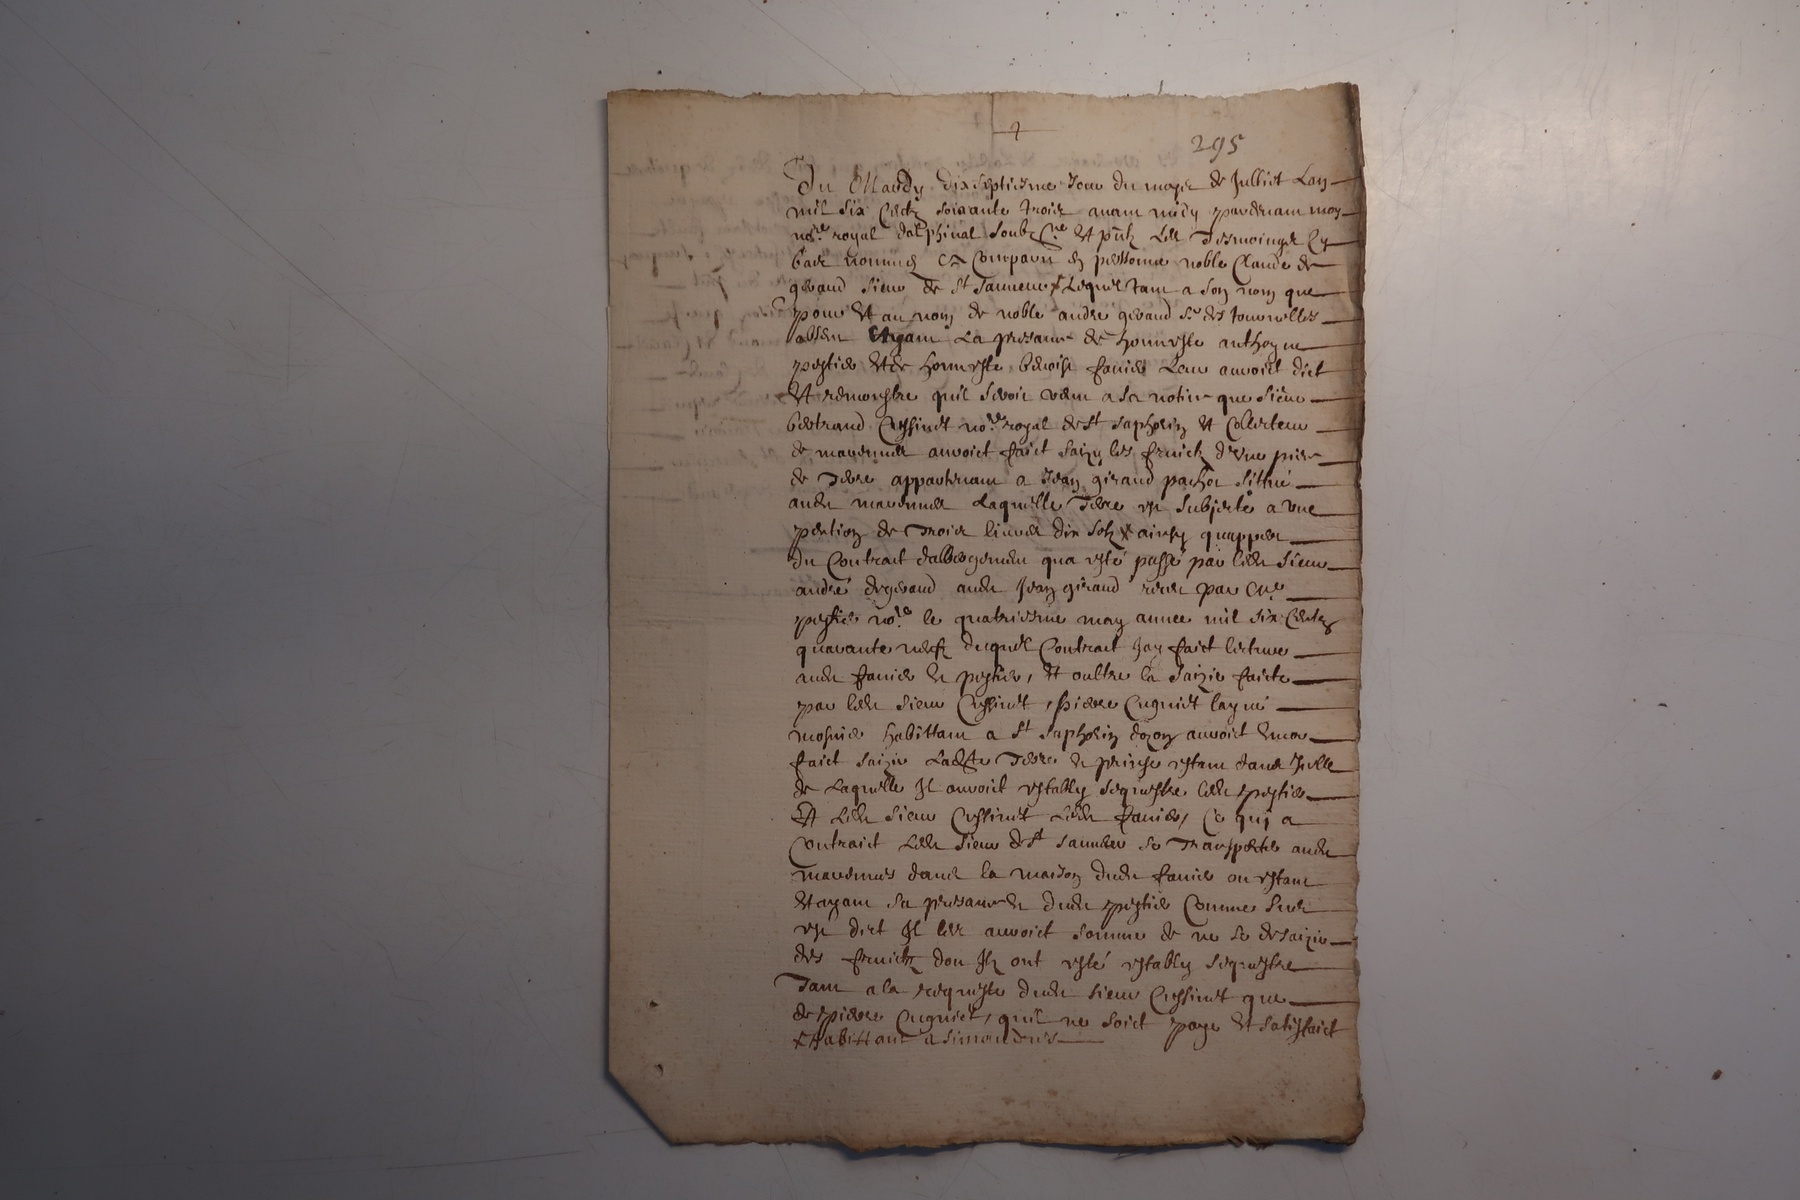 295
Du Mardy dixseptiesme Jour du moys de Julliet Lan
mil six Centz soixante trois avant midy pardevant moy
no.re royal dalphinal soubz.ne Et pntz Les Tesmoings Cy
bas nommes Est Comparu en personne noble Claude de
giraud sieur de St Lequel tant a son nom que
pour Et au nom de noble andre giraud sr des tournelles
absent Et ayant La presance de honneste anthoyne
pestier Et de honneste benoist favier Leur auroict dict
Et remonstre quil seroit venu a sa notice que sieur
bertrand Cussinet no.re royal de St saphorin Et Collecteur
de marennes auroict faict saizy les fruictz dune piece
de Terre appartenant a Jean giraud sittue
audit marennes Laquelle Terre est subjecte a une
pention de Trois livres dix solz x ainsy quappert
du Contract dalbergement qua esté passé par ledit sieur
andré degiraud audit Jean giraud receu par me
pestier no.re le quatriesme may annee mil six Centz
quarante neuf duquel Contract Jay faict lecture
audit favier et pestier, Et oultre la saizie faicte
par ledit sieur Cussinet, pierre Cugniet layné
mosnier habittant a St saphorin dozon auroict encor
faict saizir Ladite Terre et prinse estant dans Icelle
de Laquelle Il auroict estably sequestre ledit pestier
Et Ledit sieur Cussinet Ledit favier, Ce qui a
Contrainct Ledit sieur de St se Transporter audit
marennes dans la maison dudit favier ou estant
Et ayant sa presance et dudit pestier Comme sus
est dict Il les auroict somme de ne se desaizir
des fruictz dont Ilz ont esté estably sequestre
Tant a la requeste dudit sieur Cussinet que
de pierre Cugniet, quil ne soict paye Et satisfaict
x habittant a simandres